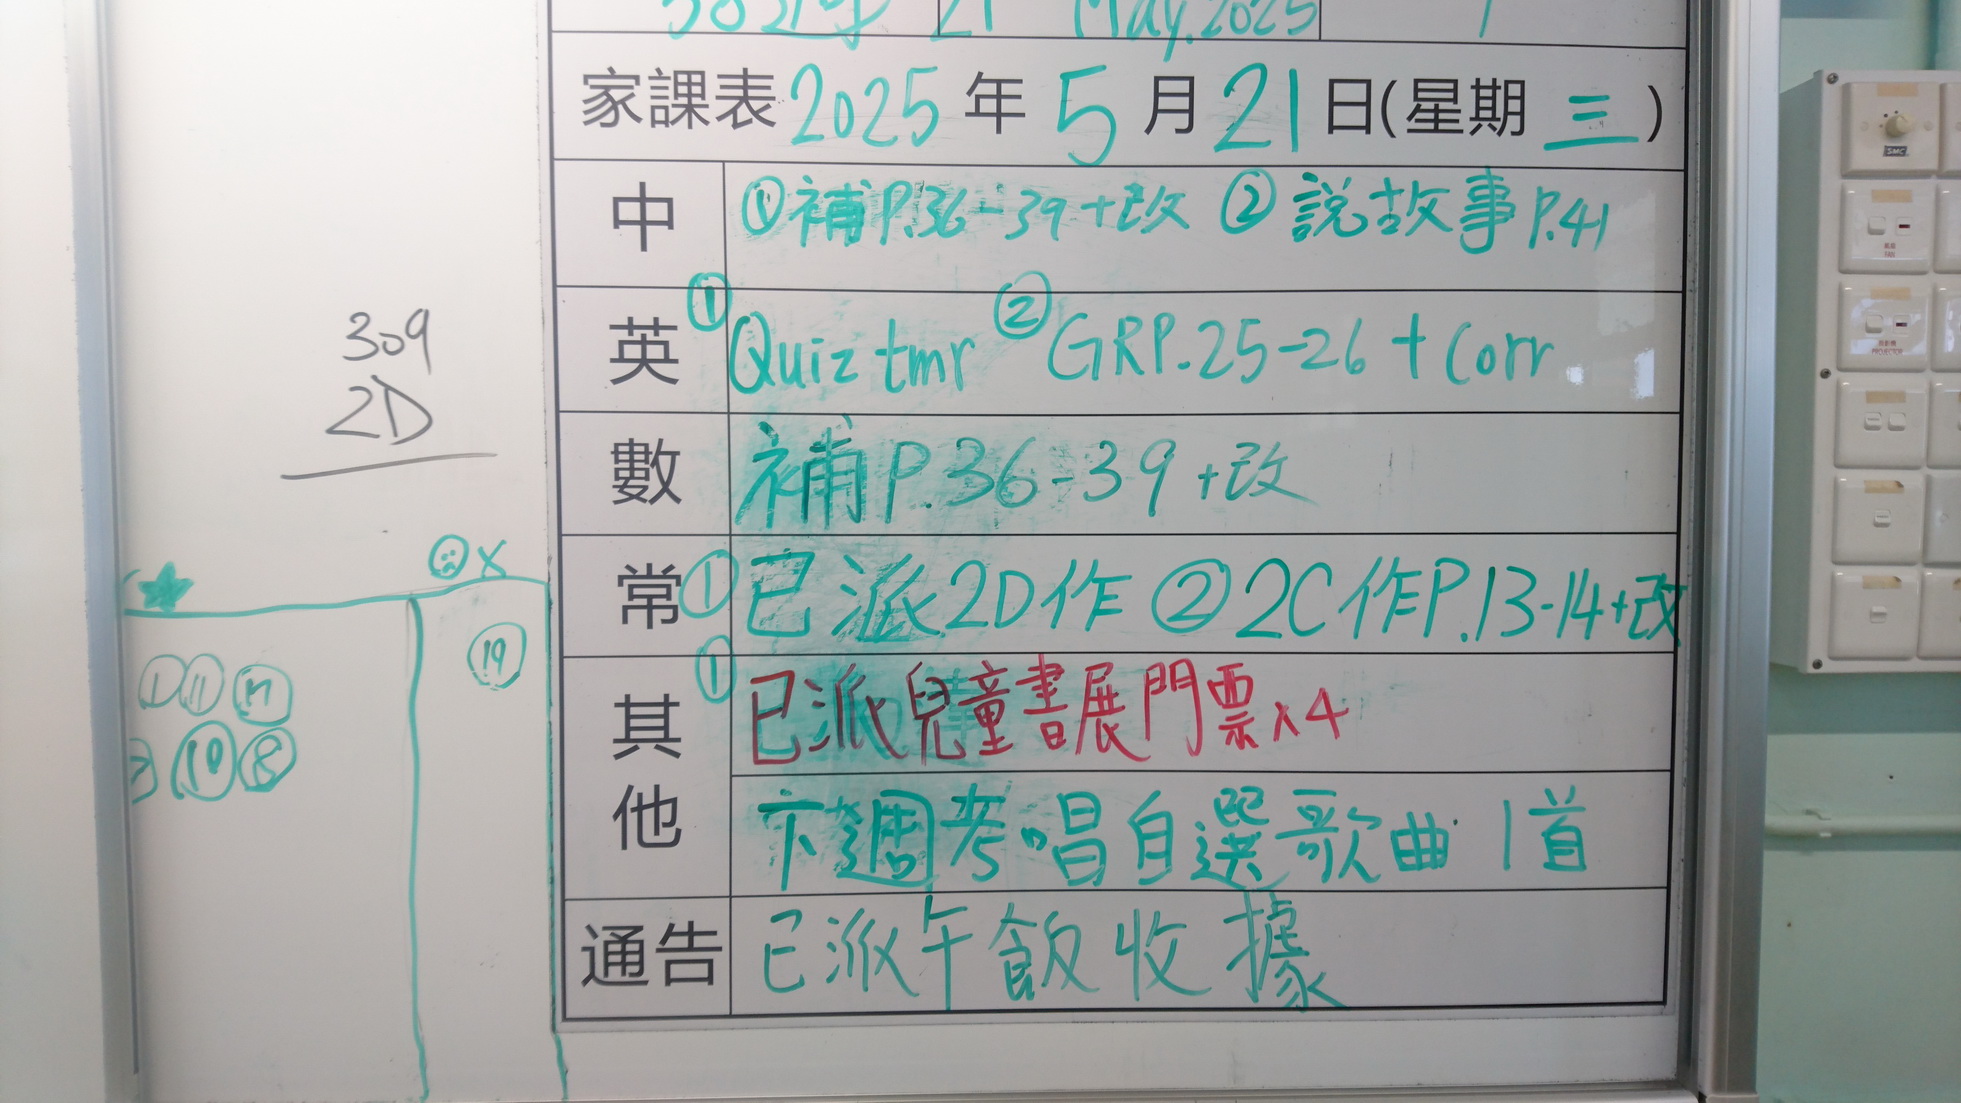 21 May, 2025 1
家課表 2025 年 5 月 21 日(星期 三)
中 ①補P.36-39+改 ②說故事P.41
英 ①Quiz tmr ②GRP.25-26+Corr
309
2D
數 補P.36-39+改
常 ①已派2D作 ②2C作P.13-14+改
X
19
1 11
10 18
其他 ①已派兒童書展門票x4
下週考唱自選歌曲1首
通告 已派午飯收據
SMC
PROJECTOR